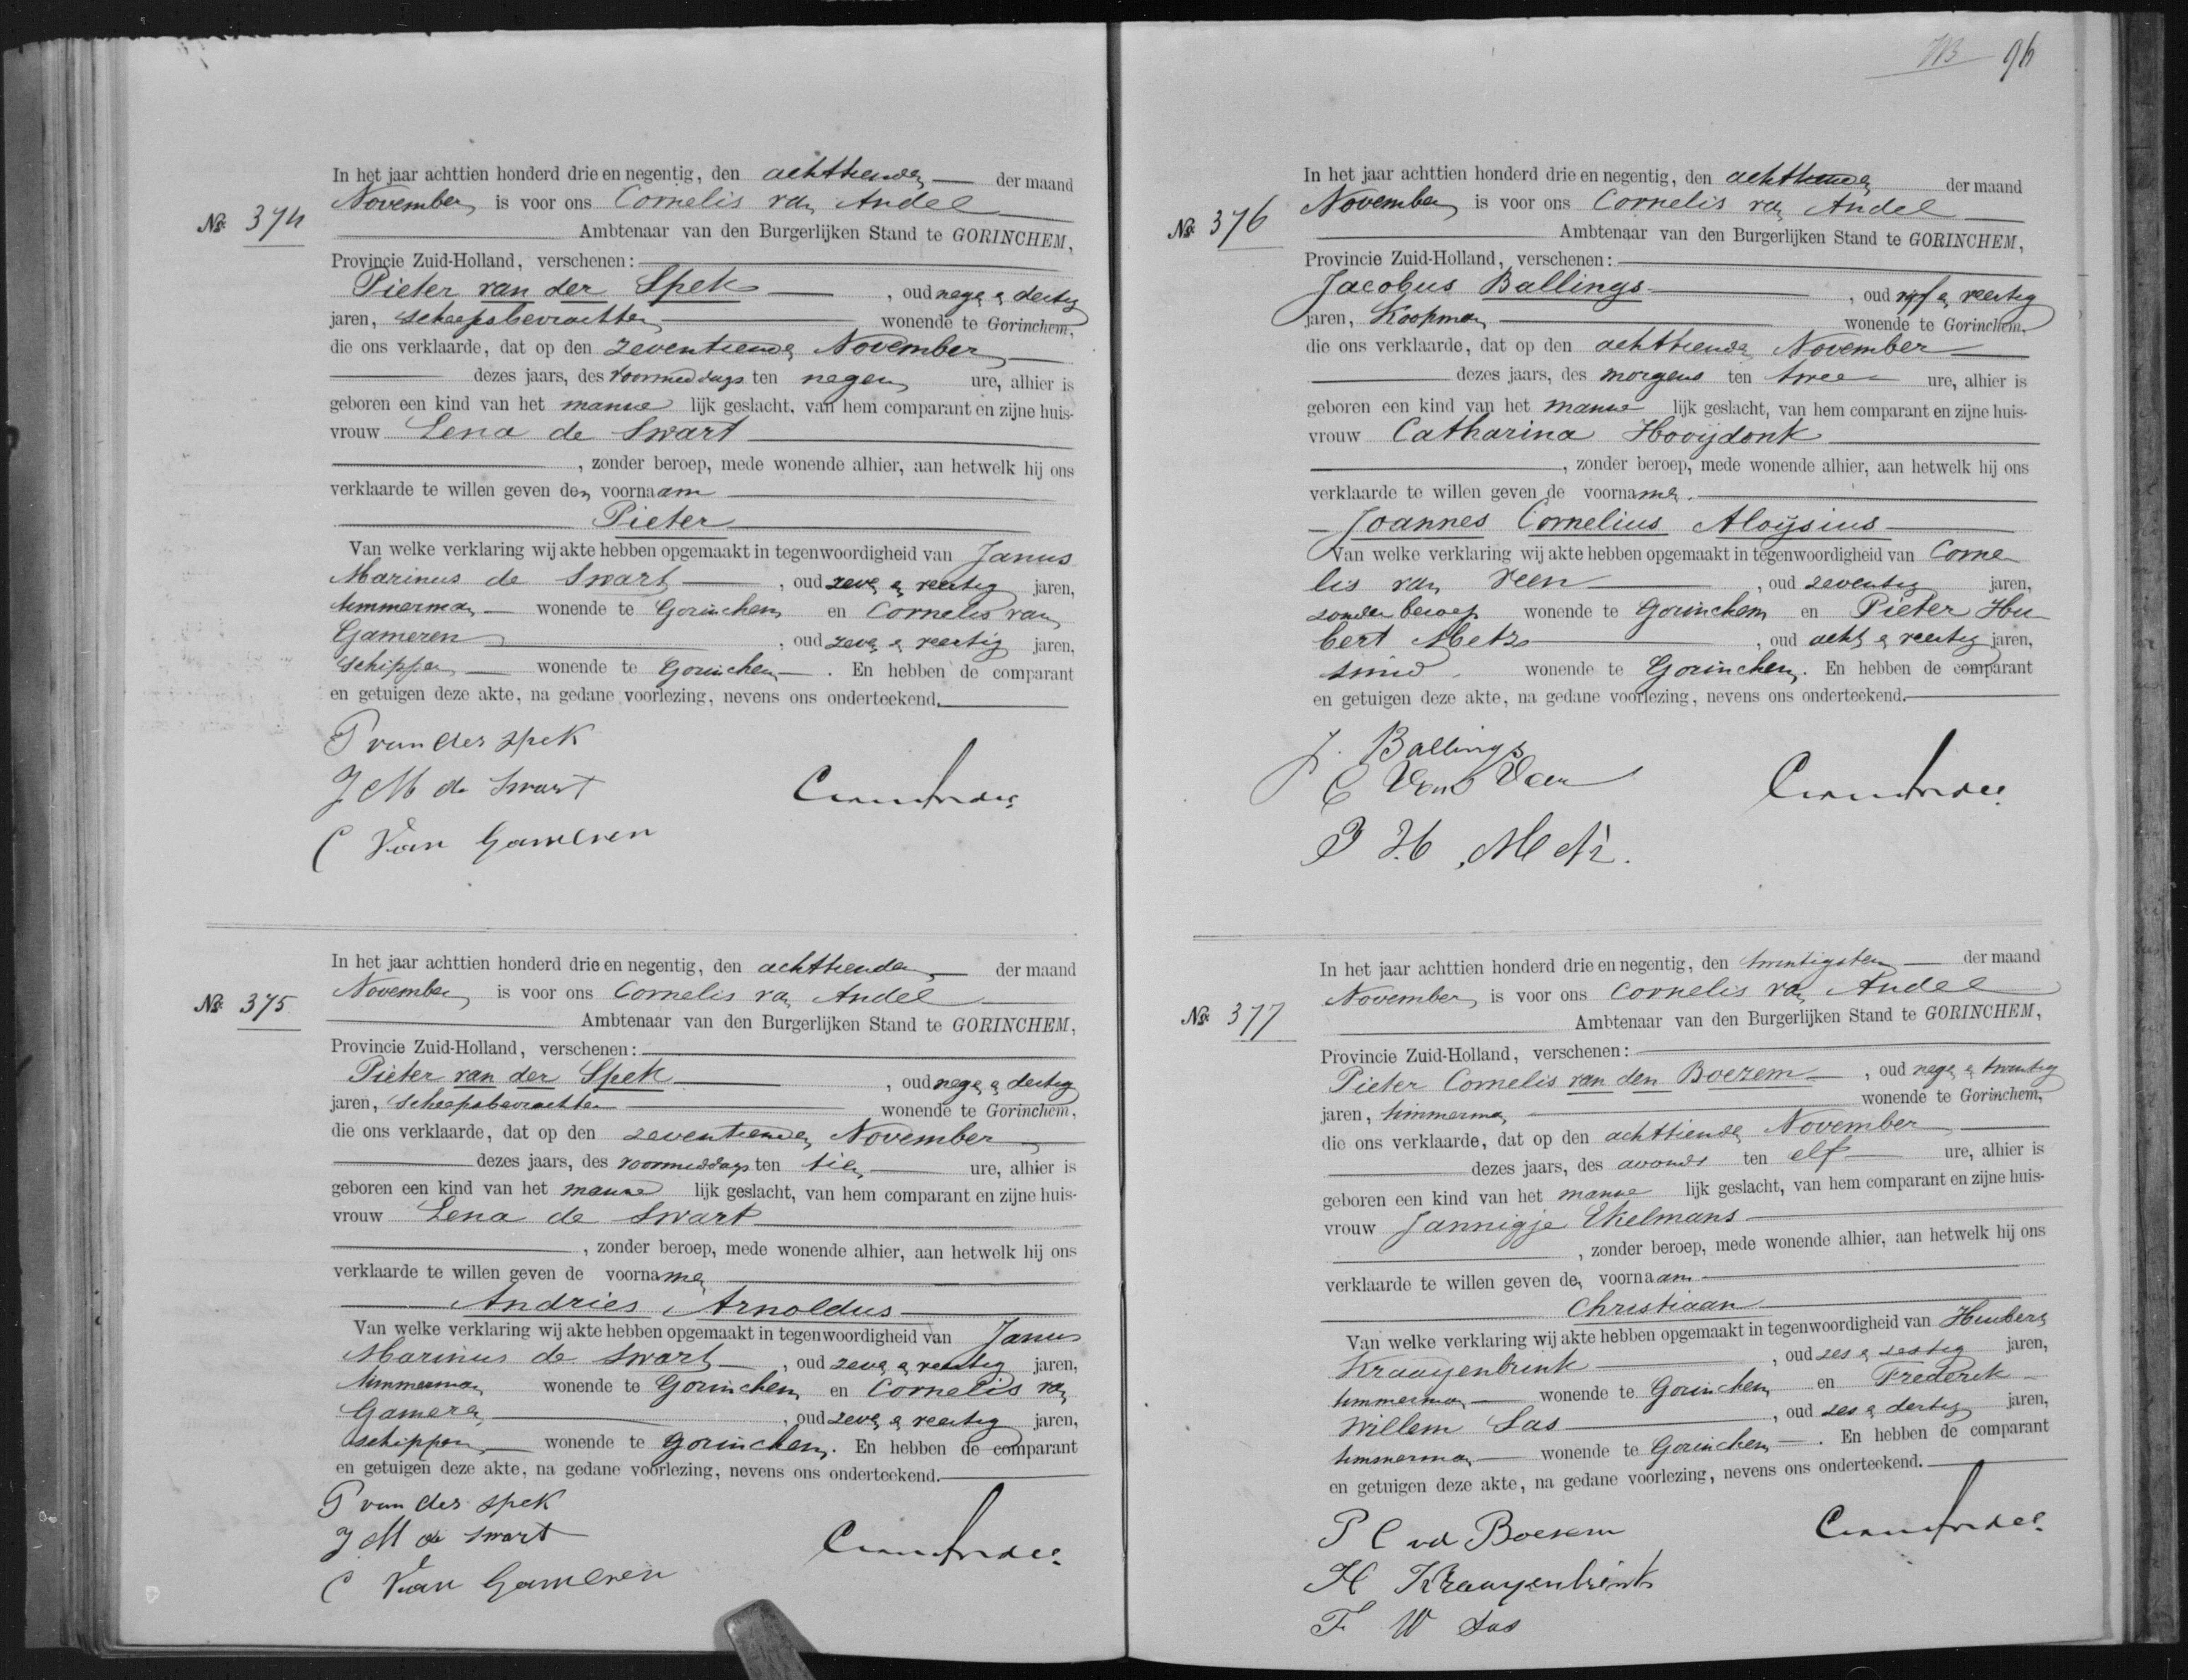 No. 374
In het jaar achttien honderd drie en negentig, den achttienden der maand
November is voor ons Cornelis van Andel
Ambtenaar van den Burgerlijken Stand te GORINCHEM,
Provincie Zuid-Holland, verschenen:
Pieter van der Spek , oud negen en dertig
jaren, scheepsbevrachter wonende te Gorinchem,
die ons verklaarde, dat op den zeventienden November
dezes jaars, des voormiddags ten negen ure, alhier is
geboren een kind van het manne lijk geslacht, van hem comparant en zijne huis-
vrouw Lena de Swart
, zonder beroep, mede wonende alhier, aan hetwelk hij ons
verklaarde te willen geven den voornaam
Pieter
Van welke verklaring wij akte hebben opgemaakt in tegenwoordigheid van Janus
Marinus de Swart , oud zeven en veertig jaren,
timmerman wonende te Gorinchem en Cornelis van
Gameren , oud zeven en veertig jaren,
schipper wonende te Gorinchem . En hebben de comparant
en getuigen deze akte, na gedane voorlezing, nevens ons onderteekend.
P van der Spek
J M de Swart
C van Andel
C Van Gameren
No. 375
In het jaar achttien honderd drie en negentig, den achttienden der maand
November is voor ons Cornelis van Andel
Ambtenaar van den Burgerlijken Stand te GORINCHEM,
Provincie Zuid-Holland, verschenen:
Pieter van der Spek , oud negen en dertig
jaren, scheepsbevrachter wonende te Gorinchem,
die ons verklaarde, dat op den zeventienden November
dezes jaars, des voormiddags ten tien ure, alhier is
geboren een kind van het manne lijk geslacht, van hem comparant en zijne huis-
vrouw Lena de Swart
, zonder beroep, mede wonende alhier, aan hetwelk hij ons
verklaarde te willen geven de voornamen
Andries Arnoldus
Van welke verklaring wij akte hebben opgemaakt in tegenwoordigheid van Janus
Marinus de Swart , oud zeven en veertig jaren,
timmerman wonende te Gorinchem en Cornelis van
Gameren , oud zeven en veertig jaren,
schipper wonende te Gorinchem. En hebben de comparant
en getuigen deze akte, na gedane voorlezing, nevens ons onderteekend.
P van der Spek
J M de Swart
C van Andel
C Van Gameren
96
No. 376
In het jaar achttien honderd drie en negentig, den achttienden der maand
November is voor ons Cornelis van Andel
Ambtenaar van den Burgerlijken Stand te GORINCHEM,
Provincie Zuid-Holland, verschenen:
Jacobus Ballings , oud vijf en veertig
jaren, Koopman wonende te Gorinchem,
die ons verklaarde, dat op den achttienden November
dezes jaars, des morgens ten twee ure, alhier is
geboren een kind van het manne lijk geslacht, van hem comparant en zijne huis-
vrouw Catharina Hooijdonk
, zonder beroep, mede wonende alhier, aan hetwelk hij ons
verklaarde te willen geven de voornamen
Joannes Cornelius Aloijsius
Van welke verklaring wij akte hebben opgemaakt in tegenwoordigheid van Corne
lis van Veen , oud zeventig jaren,
zonder beroep wonende te Gorinchem en Pieter Hu
bert Metz , oud acht en veertig jaren,
smid wonende te Gorinchem. En hebben de comparant
en getuigen deze akte, na gedane voorlezing, nevens ons onderteekend.
J. Ballings
C Van Veen
C van Andel
P H Metz.
No. 377
In het jaar achttien honderd drie en negentig, den twintigsten der maand
November is voor ons Cornelis van Andel
Ambtenaar van den Burgerlijken Stand te GORINCHEM,
Provincie Zuid-Holland, verschenen:
Pieter Cornelis van den Boezem , oud negen en twintig
jaren, timmerman wonende te Gorinchem,
die ons verklaarde, dat op den achttienden November
dezes jaars, des avonds ten elf ure, alhier is
geboren een kind van het manne lijk geslacht, van hem comparant en zijne huis-
vrouw Jannigje Ekelmans
, zonder beroep, mede wonende alhier, aan hetwelk hij ons
verklaarde te willen geven den voornaam
Christiaan
Van welke verklaring wij akte hebben opgemaakt in tegenwoordigheid van Huibert
Kraayenbrink , oud zes en zestig jaren,
timmerman wonende te Gorinchem en Frederik
Willem Sas , oud zes en dertig jaren,
timmerman wonende te Gorinchem . En hebben de comparant
en getuigen deze akte, na gedane voorlezing, nevens ons onderteekend.
P C vd Boezem
C van Andel
H Kraayenbrink
F W Sas